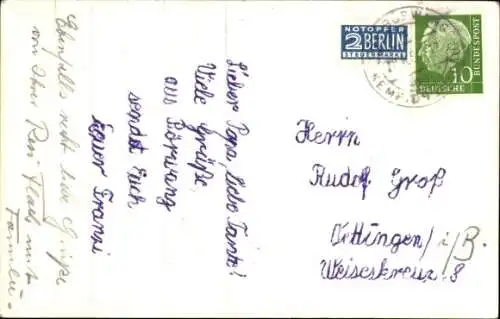 NOTOPFER
2 BERLIN
STEUERMARKE
DEUTSCHE
BUNDESPOST
10
Lieber Papa Liebe Tante!
Viele Grüße
aus Börwang
sendet Euch
Euer Franzi
Ebenfalls recht liebe Grüße
von Ihrer Resi
mit
Familie
Herrn
Rudolf Groß
Oettingen/i/B.
Weiseskreuz 8